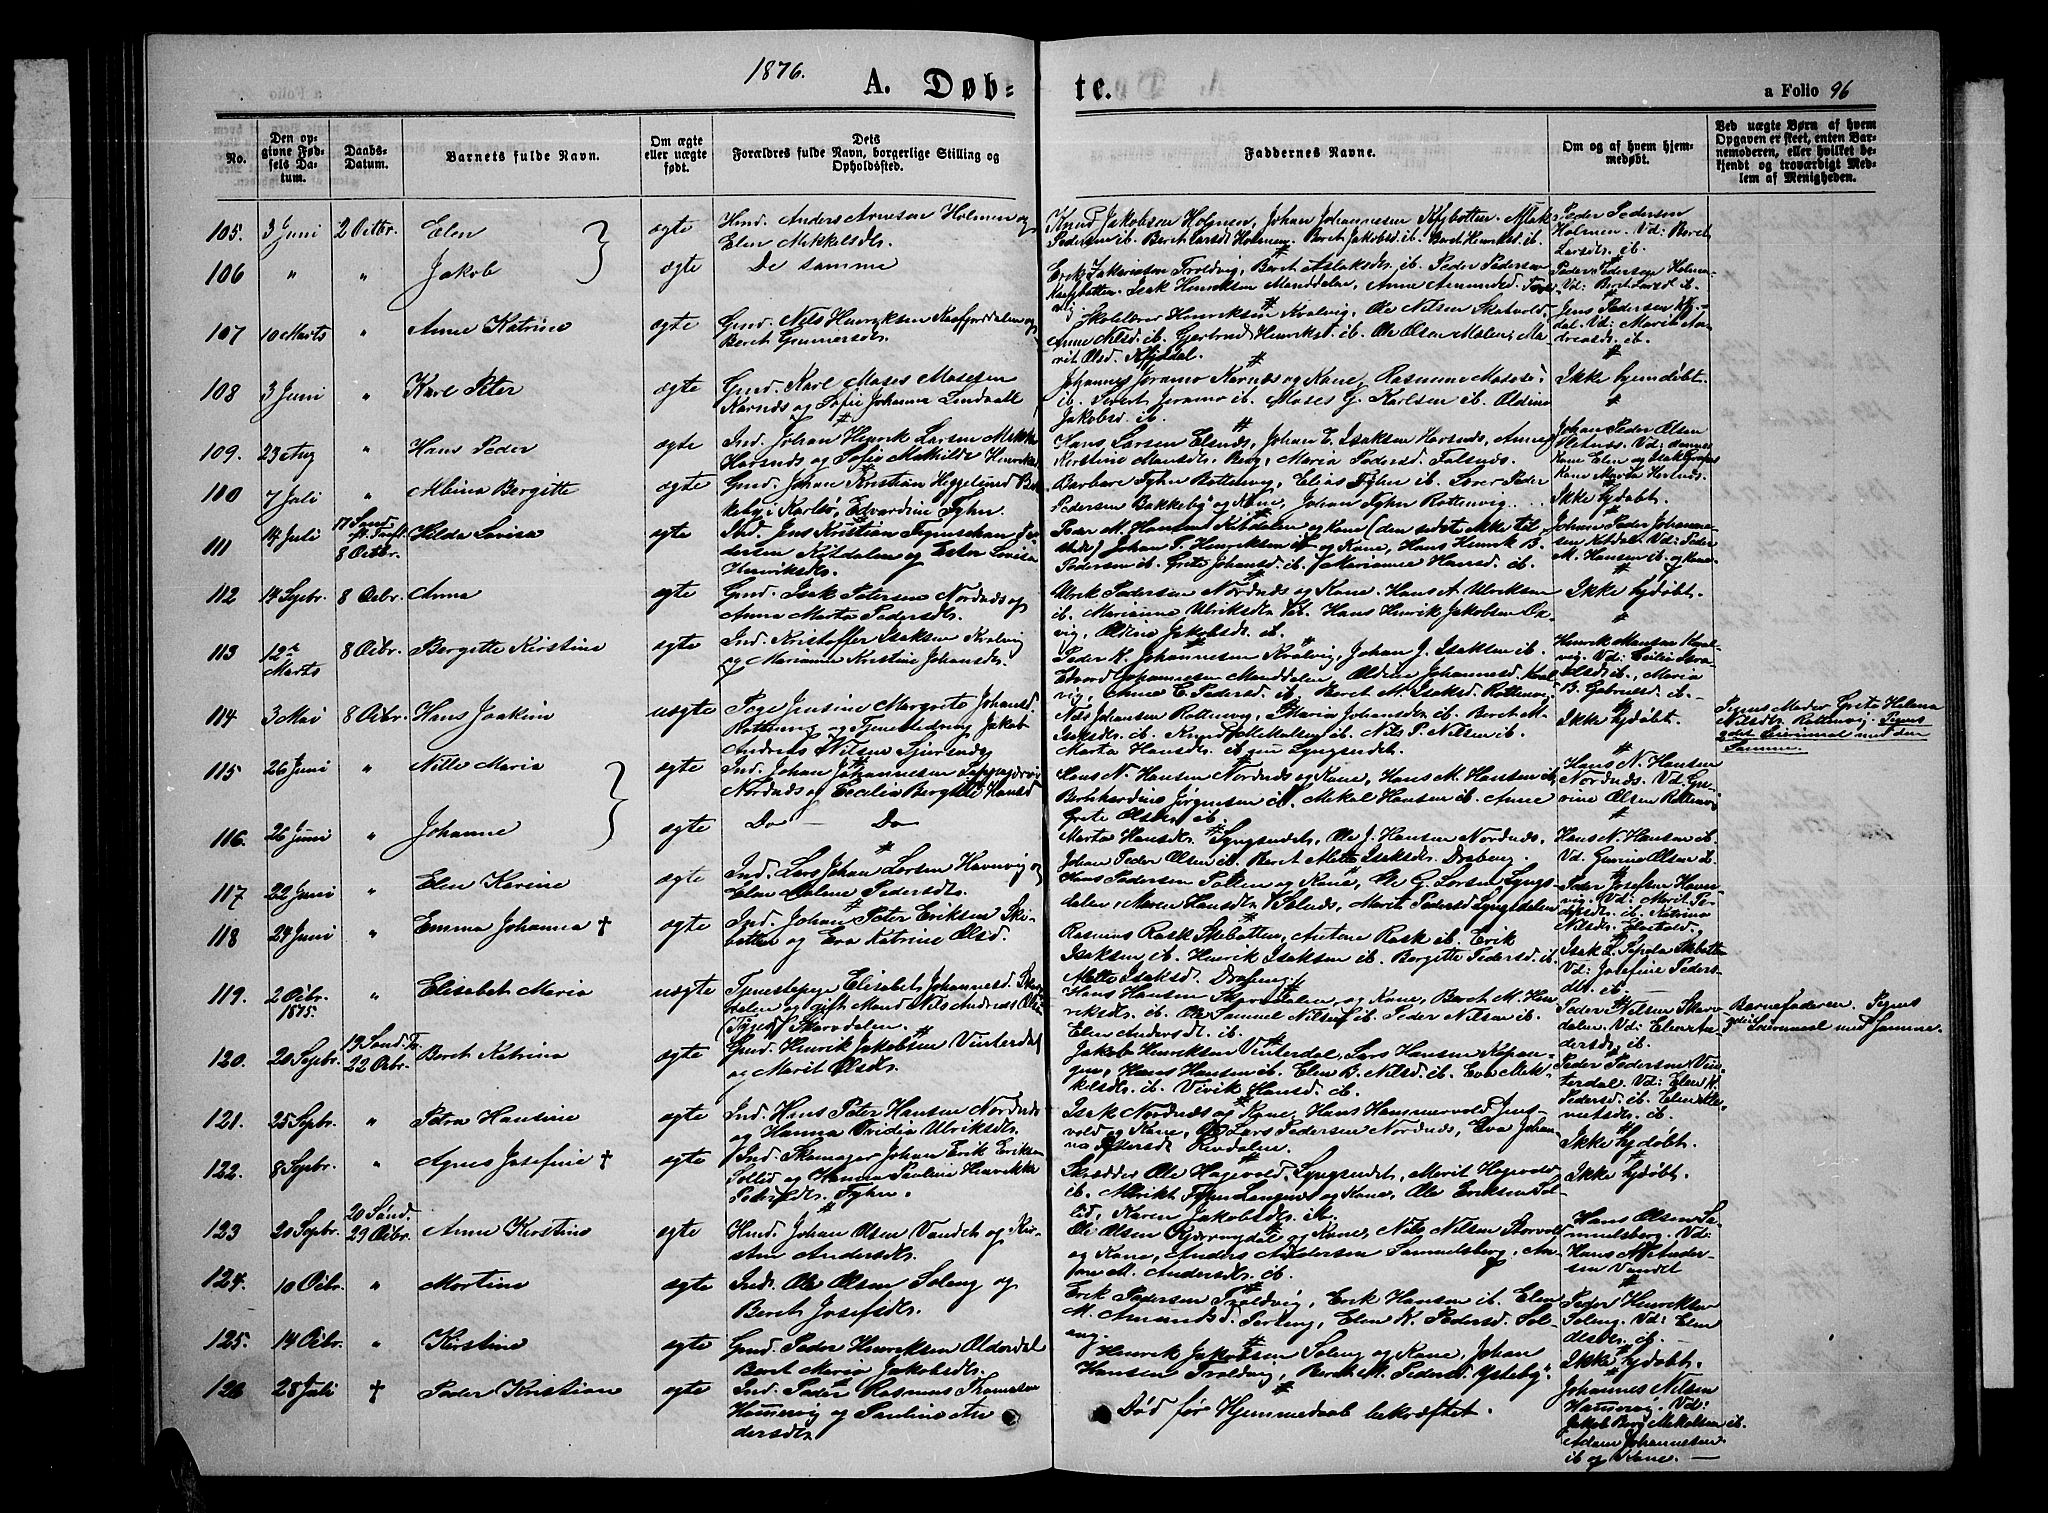 1876.
A. Døb-
te.
a Folio 96
No.
Den op-
givne Fød-
sels Da-
tum.
Daabs-
Datum.
Barnets fulde Navn.
Om ægte
eller uægte
født.
Dets
Forældres fulde Navn, borgerlige Stilling og
Opholdssted.
Faddernes Navne.
Om og af hvem hjem-
medøbt.
Ved uægte Børn af hvem
Opgaven er skeet, enten Bar-
nemoderen, eller hvilket be-
kjendt og troværdigt Med-
lem af Menigheden.
105. 3 Juni 2 Octbr. Elen ægte Anders Arnesen Holmen og
Elen Mikkelsdtr.
Knud Jakobsen Holmen, Johan Johannesen
Pedersen ib. Beret Larsdt Holmen, Beret Jakobsd. ib. Beret Henriksd. ib.
Peder Pedersen
Holmen. Vd: Beret
Larsdtr. ib.
106 " " Jakob ægte De samme
Troldvig, Beret Aslaksdtr. ib. Peder Pedersen
Isak Henriksen Manddalen, Anne Amundsd.
Peder Pedersen Holmen
Vd: Beret Larsd. ib.
107 10 Marts " Anne Katrine ægte Gmd. Nils Henriksen Kaafjorddalen og
Beret Gunnersdtr.
Skolelærer Henriksen Kvalvig, Ole Nilsen Skatvold,
Anne Nilsd. ib. Gjertrud Henriksd. ib. Ole Olsen
Jens Pedersen
dal. Vd: Marit An-
dreasdtr. ib.
108 3 Juni " Karl Peter ægte Gmd. Karl Moses Mosesen
Karnæs og Sofie Johanna Lindvall
Johannes Jeramo Karnæs og Kone, Rasmine
ib. Sivert Jeramo ib. Moses G. Karlsen ib. Oldine
Jakobsd. ib.
Ikke hjemdøbt.
109. 23 Aug " Hans Peder ægte Ind. Johan Henrik Larsen
og Sofie Mathilde
Hans Larsen Elsnæs, Johan E. Isaksen Horsnæs, Anne
Kirstine Hansdtr. Berg, Maria Pedersd.
Johan Peder Olsen
110 7 Juli " Albina Bergitte ægte Gmd. Johan Kristian Heggelund Bak-
keby i Karlsø, Edvardine Fyhn
Barbara Fyhn Rottenvig, Elias Fyhn ib. Peder
Pedersen Bakkeby og Kone, Johan Fyhn Rottenvig
Ikke hjdøbt.
111 14 Juli 17 Sønd.
8 Octbr.
Hilda Lovisa ægte Ind. Jens Kristian
dersen Kitdalen og Ester Lovisa
Henriksdtr.
Peder M. Hansen Kitdalen og Kone (den sidste ikke til
stede) Johan P. Henriksen ib og Kone, Hans Henrik B.
Pedersen ib. Grete Johansd. ib. Marianne Hansd. ib.
Johan Peder Johanne-
sen Kitdal. Vd: Peder
M. Hansen ib. og Kone
112 14 Sepbr. 8 Octbr. Anna ægte Gmd. Isak Petersen Nordnæs og
Anna Marta Pedersdtr.
Ulrik Pedersen Nordnæs og Kone. Hans A. Ulriksen
ib. Marianne Ulriksdtr. ib. Hans Henrik Jakobsen
vig, Oldine Jakobsdtr. ib.
Ikke hjdøbt.
113 12te
Marts
8 Octbr. Bergitte Kirstine ægte Ind. Kristoffer Isaksen Kvalvig
og Marianne Kristine Johansdtr.
Peder K. Johannesen Kvalvig, Johan J. Isaksen ib.
Edvard Johannesen Manddalen, Oldine Johannesd. Kval-
vig, Anne E. Pedersd. ib. Beret M. Isaksd. Rottenvig
Henrik Hansen Kval-
vig. Vd: Cecilia Isra-
elsdtr. ib., Maria
B. Gabrielsd. ib.
114 3 Mai 8 Octbr. Hans Joakim uægte Pige Jensine Margrete Johansd.
Rottenvig og Tjenestedreng Jakob
Andreas Nilsen
Nils Johansen Rottenvig, Maria Johansdtr. ib. Beret M.
Isaksdtr. ib. Nils P. Nilsen ib.
Marta Hansdtr. ib
Ikke hjdøbt.
Pigens Moder Grete Helena
Nilsdtr. Rottenvig. Pigens
2det Leiermaal med den
Samme.
115 26 Juni " Nille Maria ægte Ind. Johan Johannesen
Nordnæs og Cecilia Bergitte Hansd.
Hans N. Hansen Nordnæs og Kone, Hans M. Hansen ib.
Bernhardine Jørgensen ib. Mikal Hansen ib. Anne
Grete Olsen ib.
Hans N. Hansen
Nordnæs. Vd: Gu-
rine Olsen Rottenvig
116. 26 Juni " Johanne ægte Do — Do
Marta Hansdtr. Lyngseidet, Ole J. Hansen Nordnæs,
Johan Peder Olsen ib. Beret Mette Isaksdtr.
Hans N. Hansen ib.
Vd: Gurine Olsen ib.
117 22 Juni " Elen Karine ægte Ind. Lars Johan Larsen Havnvig og
Elen Malene Pedersdtr.
Hans Pedersen Pollen og Kone, Ole G. Larsen, Lyngs-
dalen, Maren Hansdtr. Marit Pedersd. Lyngsdalen
Peder Josefsen Havn-
vig. Vd: Marit Pe-
dersdtr. ib. Katrina
Nilsdtr.
118 24 Juni " Emma Johanna † ægte Ind. Johan Peter Eriksen Ski-
botten og Eva Katrine Olsd.
Rasmus Rask Skibotten, Antone Rask ib. Erik
Isaksen ib. Henrik Isaksen ib. Bergitte Pedersd. ib.
Mette Isaksd.
Isak L. Skibotten
Vd: Josefine Peders-
dtr. ib.
119. 2 Octbr.
1875.
" Elisabet Maria uægte Tjenestepige Elisabet Johannesd. Skar-
dalen og gift Mand Nils Andreas
Skardalen.
Hans Hansen Skardalen og Kone, Beret M. Hen-
riksdtr. ib. Ole Samuel Nilsen ib. Peder Nilsen ib.
Elen Andersdt. ib.
Peder Nilsen Skar-
dalen. Vd: Elen An-
dersdtr. ib.
Barnefaderen. Pigens
Leiermaal med Samme.
120. 20 Sepbr. 19 Sønd. Tr.
22 Octbr.
Beret Katrina ægte Gmd. Henrik Jakobsen Vinterdal
og Marit Olsdtr.
Jakob Henriksen Vinterdal, Lars Hansen
gen, Hans Hansen ib. Elen B. Nilsd. ib. Eva Mik-
kelsdtr. ib. Vivik Hansd. ib.
Peder Pedersen Vin-
terdal. Vd: Elen K.
Pedersd. ib.
121. 25 Sepbr. " Petra Hansine ægte Ind. Hans Peter Hansen Nordnæs
og Hanna Ulriksdtr.
Isak Nordnæs og Kone, Hans Hammervold
og Kone, Lars Pedersen Nordnæs, Eva Johan-
Ikke hjdøbt.
122. 8 Sepbr. " Agnes Josefine † ægte Ind. Skomager Johan Erik Eriksen
Sollid og Hanna Pauline Henrikke
Pedersdtr. Fyhn.
Skrædder Ole Hagevold, Lyngseidet, Marit Hagevold
ib. og Kone, Ole Eriksen Sol-
lid, Karen Jakobsdtr. ib.
Ikke hjdøbt.
123 20 Sepbr. 20 Sønd.
29 Octbr.
Anne Kirstine ægte Hmd. Johan Olsen Vandet og Kir-
stine Andersdtr.
Ole Olsen og Kone, Nils Nilsen Storvold
og Kone, Anders Andersen Samuelsberg,
M. Andersdtr. ib.
Hans Olsen Sa-
muelsberg. Vd:
Hans A. Ander-
sen Vandet
124. 10 Octbr. " Martine ægte Ind. Ole Olsen Soleng og
Beret Josefsdtr.
Erik Pedersen Troldvig, Erik Hansen ib. Elen
M. Amundsd. Elen K. Pedersd. Sol-
eng.
Peder Henriksen
Soleng. Vd: Elen
125. 14 Octbr. " Kirstine ægte Gmd. Peder Henriksen Olderdal
Beret Maria Jakobsdtr.
Henrik Jakobsen Soleng og Kone, Johan
Hansen Troldvig, Beret M. Pedersd. Ysteby.
Ikke hjdøbt.
126 28 Juli † Peder Kristian ægte Ind. Peder Rasmus Thomesen
Hamnvig og Pauline An-
dersdtr.
Død før Hjemmedaab bekræftet.
Johannes Nilsen
Hamnvig. Vd:
Jakob Berg Mikkelsen ib.
Adam Johannesen
ib og Kone.